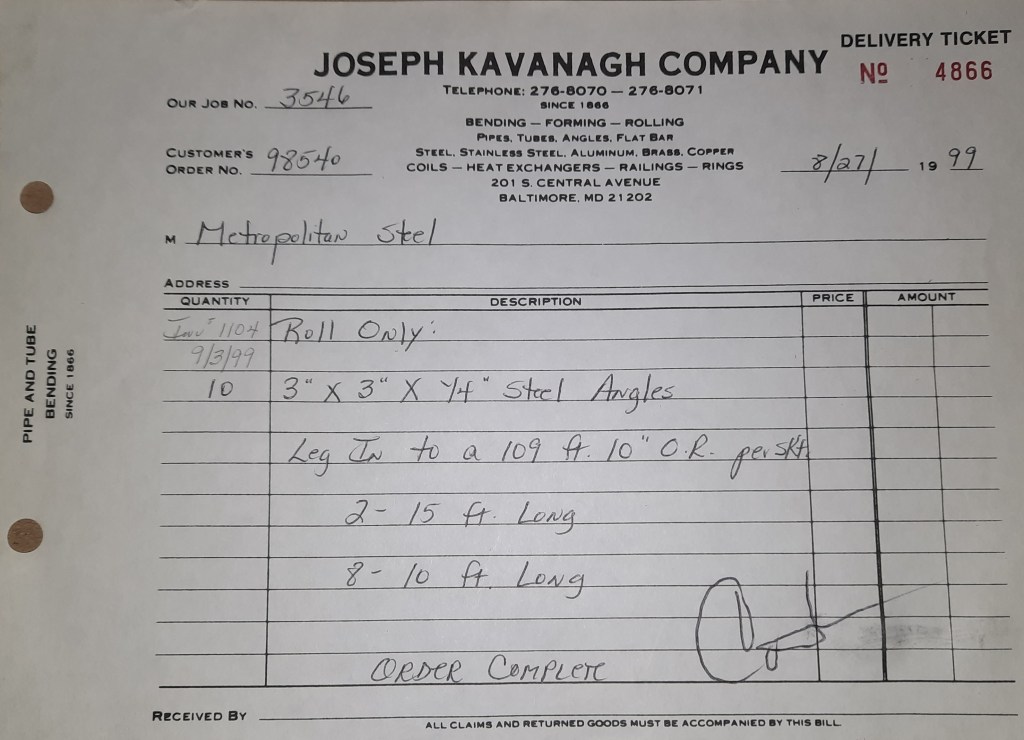 DELIVERY TICKET
JOSEPH KAVANAGH COMPANY
No 4866
TELEPHONE: 276-8070 — 276-8071
SINCE 1866
OUR JOB NO. 3546
BENDING — FORMING — ROLLING
PIPES, TUBES, ANGLES, FLAT BAR
CUSTOMER'S ORDER NO. 98540
STEEL, STAINLESS STEEL, ALUMINUM, BRASS, COPPER
COILS — HEAT EXCHANGERS — RAILINGS — RINGS
8/27/ 19 99
201 S. CENTRAL AVENUE
BALTIMORE, MD 21202
M Metropolitan Steel
ADDRESS
QUANTITY DESCRIPTION PRICE AMOUNT
1104 Roll Only:
9/3/99
10 3" X 3" X 1/4" Steel Angles
Leg In to a 109 ft. 10" O.R. per skt.
2 - 15 ft. Long
8 - 10 ft. Long
ORDER COMPLETE
RECEIVED BY
ALL CLAIMS AND RETURNED GOODS MUST BE ACCOMPANIED BY THIS BILL.
PIPE AND TUBE
BENDING
SINCE 1866